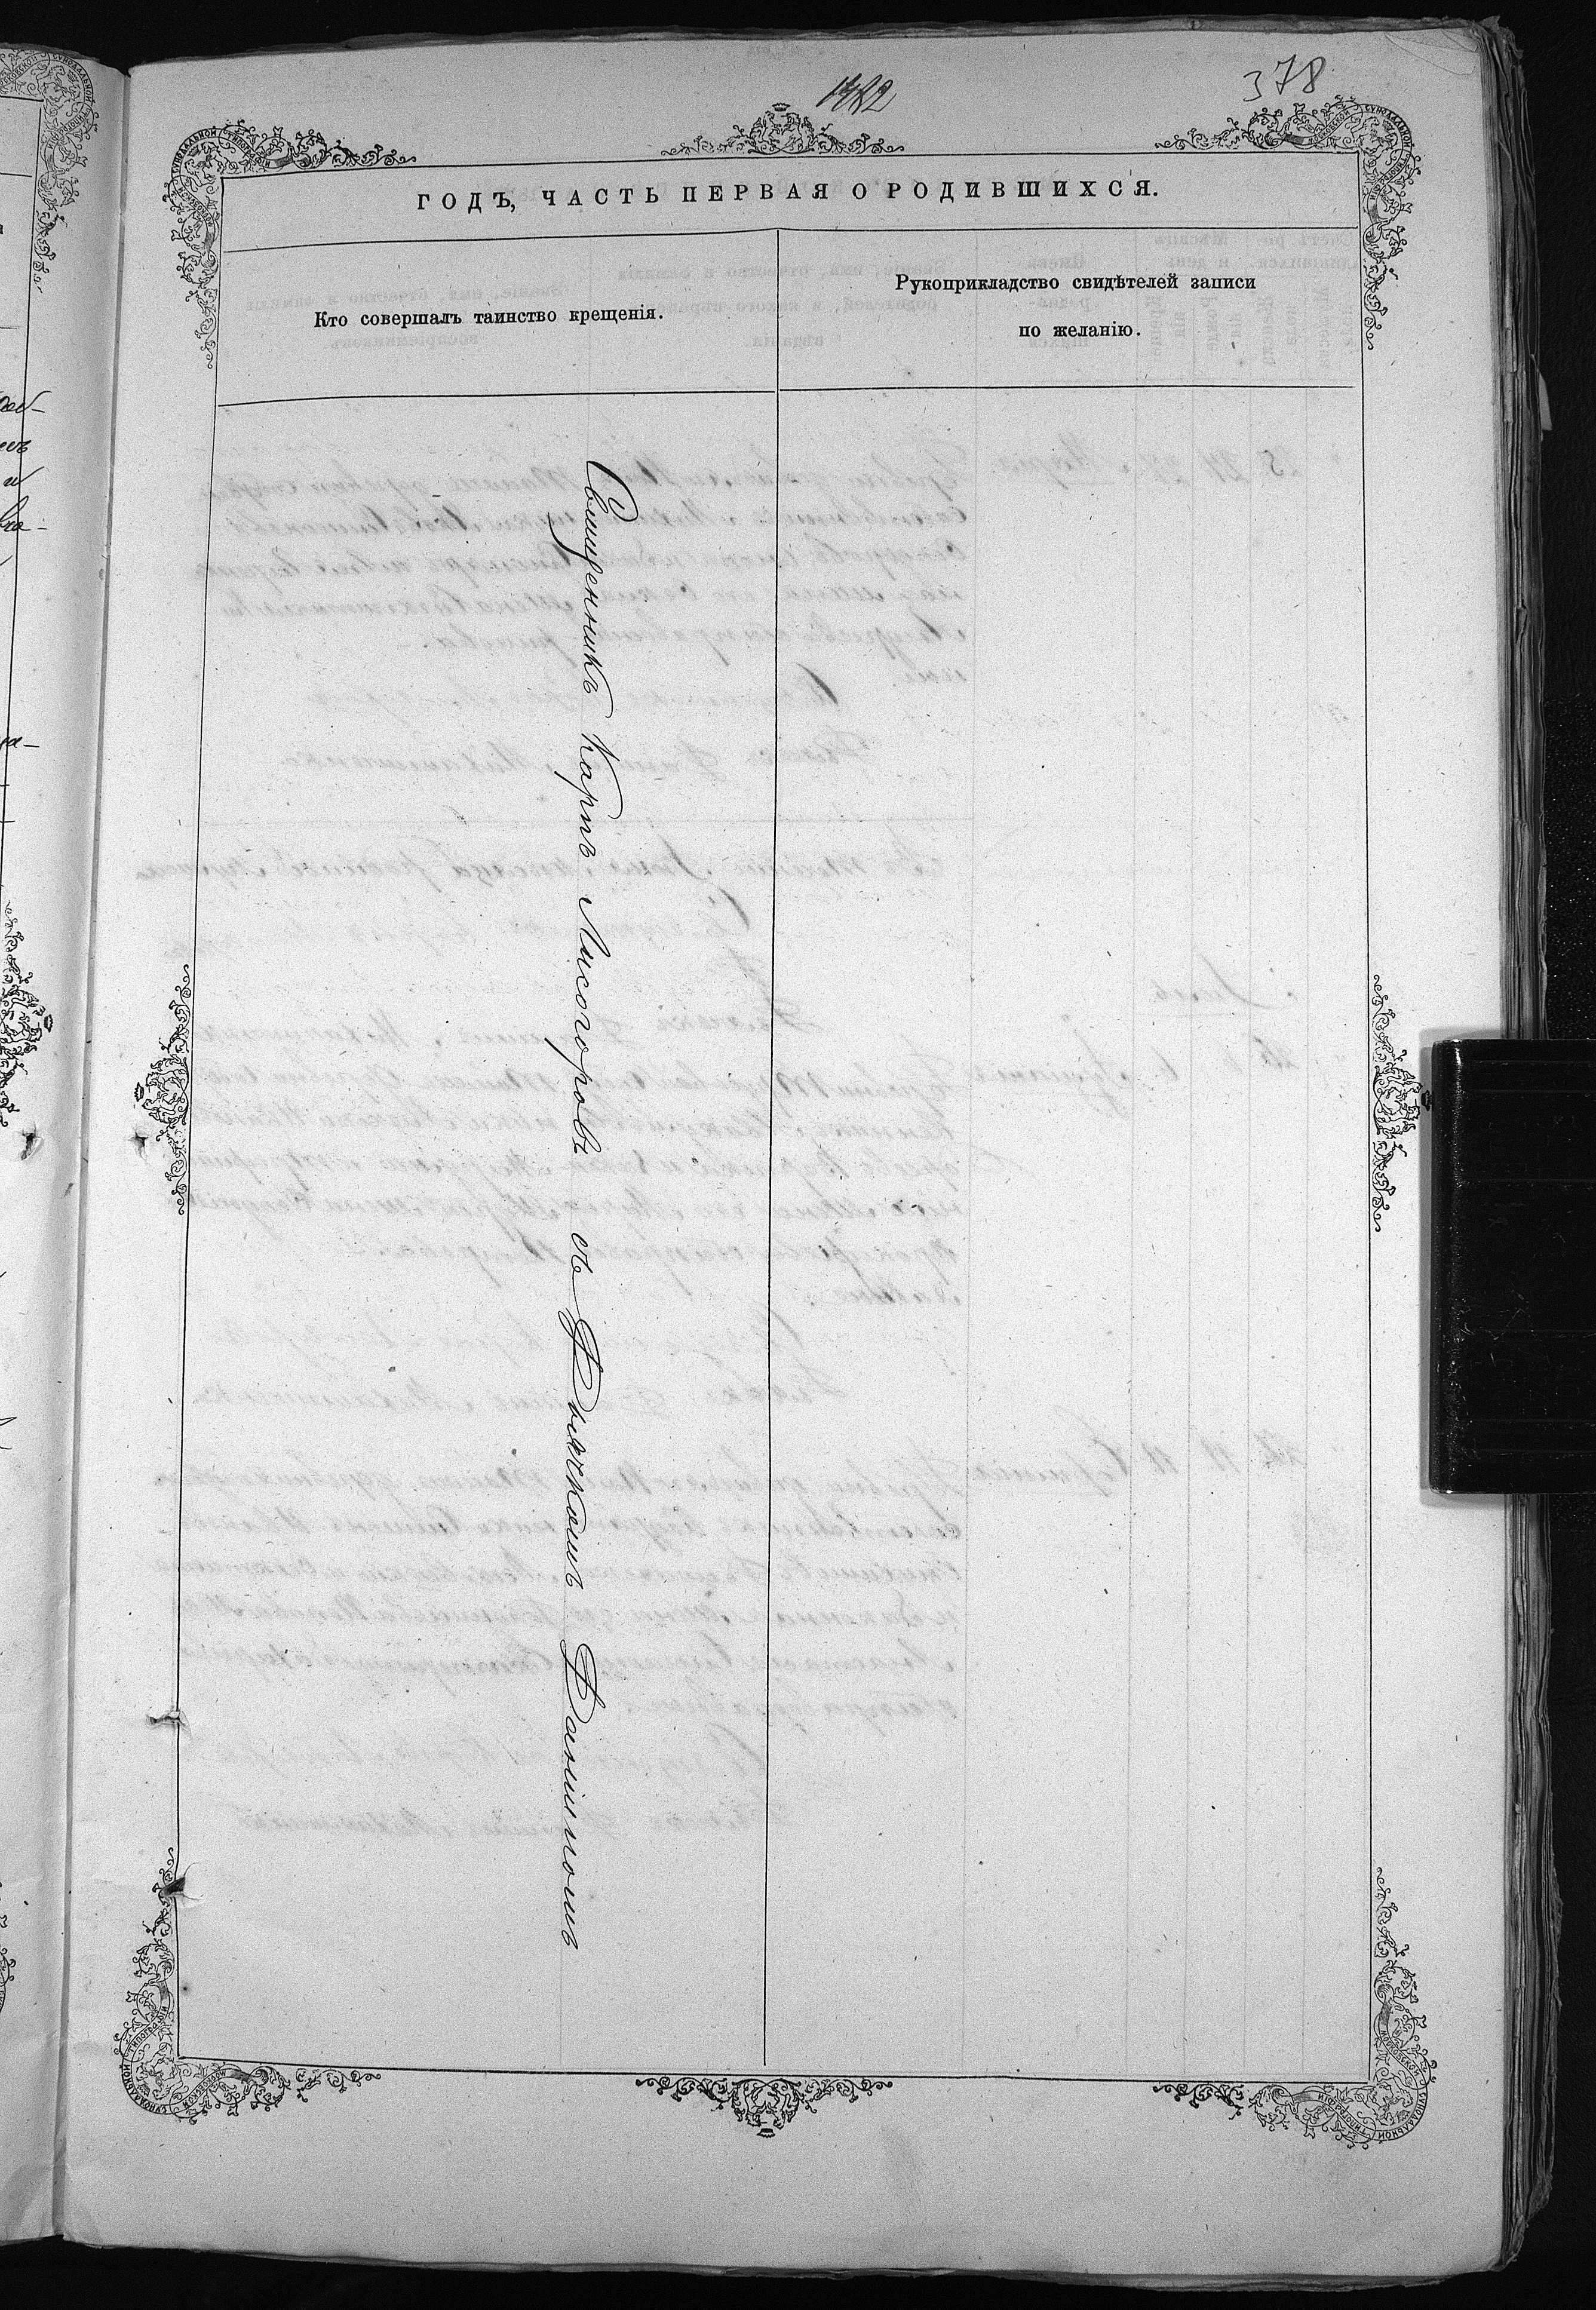 378
ГОДЪ, ЧАСТЬ ПЕРВАЯ О РОДИВШИХСЯ.
Кто совершалъ таинство крещенія.
Рукоприкладство свидѣтелей записи
по желанію.
Священникъ Карпъ Лисогоровъ съ Дьячкомъ Даніиломъ